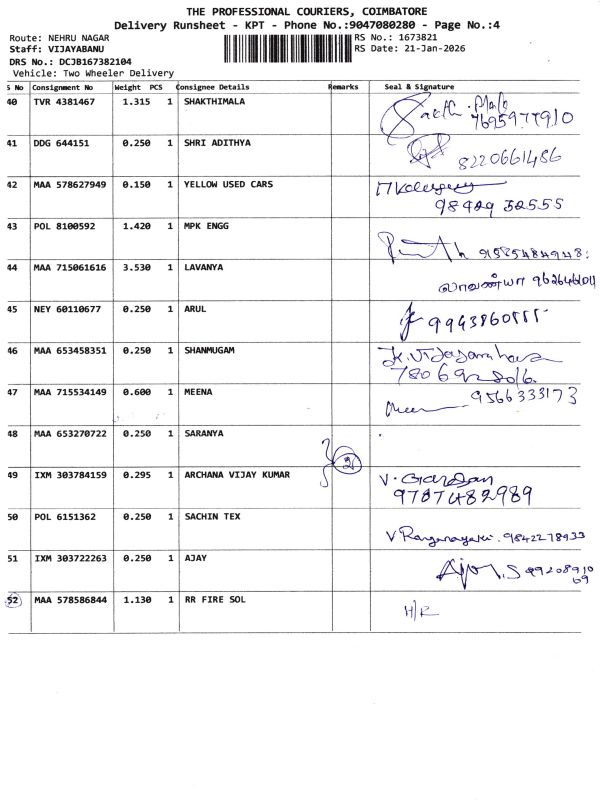 THE PROFESSIONAL COURIERS, COIMBATORE
Delivery Runsheet - KPT - Phone No.:9047080280 - Page No.:4
Route: NEHRU NAGAR RS No.: 1673821
Staff: VIJAYABANU RS Date: 21-Jan-2026
DRS No.: DCJB167382104
Vehicle: Two Wheeler Delivery
S No Consignment No Weight PCS Consignee Details Remarks Seal & Signature
40 TVR 4381467 1.315 1 SHAKTHIMALA
7695977910
41 DDG 644151 0.250 1 SHRI ADITHYA
8220661486
42 MAA 578627949 0.150 1 YELLOW USED CARS
98429 52555
43 POL 8100592 1.420 1 MPK ENGG
9585484948
44 MAA 715061616 3.530 1 LAVANYA
லாவண்யா
45 NEY 60110677 0.250 1 ARUL
46 MAA 653458351 0.250 1 SHANMUGAM
47 MAA 715534149 0.600 1 MEENA
9566333173
48 MAA 653270722 0.250 1 SARANYA
2
49 IXM 303784159 0.295 1 ARCHANA VIJAY KUMAR
9787482989
50 POL 6151362 0.250 1 SACHIN TEX
V Ranganayaki. 9842278933
51 IXM 303722263 0.250 1 AJAY
Ajay.S
52 MAA 578586844 1.130 1 RR FIRE SOL
H/R